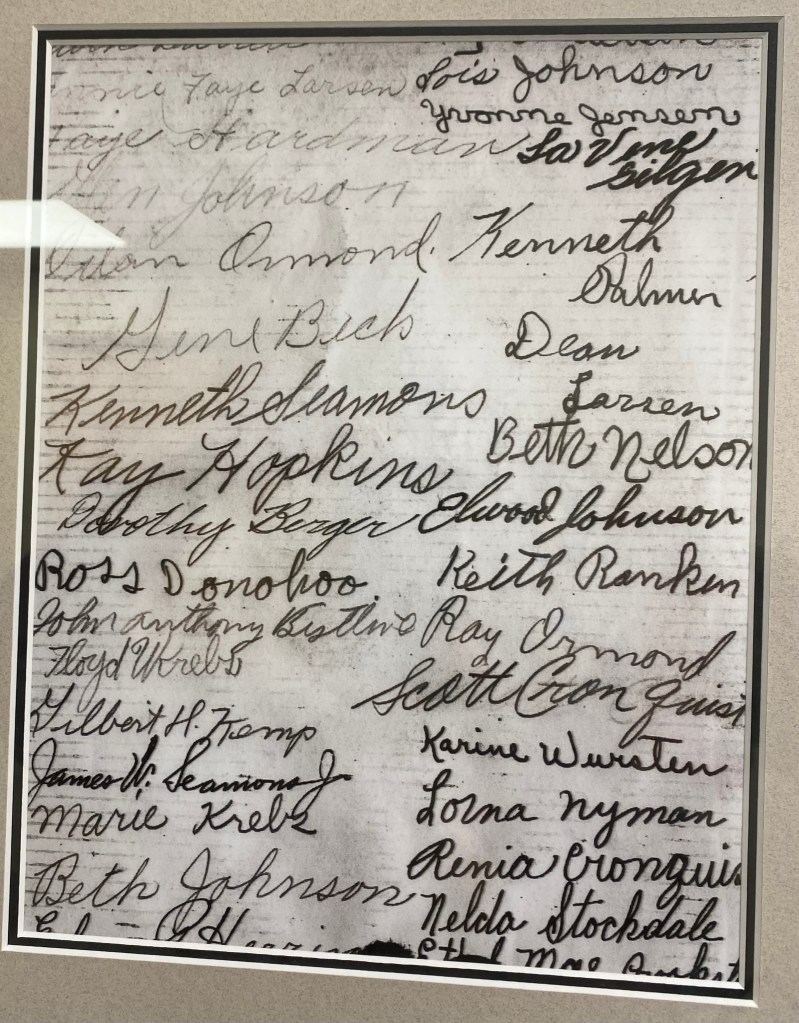 Faye Larsen
Faye Hardman
Johnson
Ormond.
Gene Beck
Kenneth Seamons
Kay Hopkins
Dorothy Berger
Ross Donohoo
John anthony
Floyd W Krebs
Gilbert H. Kemp
James W. Seamons Jr
Marie Krebs
Beth Johnson
Lois Johnson
Yvonne Jensen
La Vine
Gilgen
Kenneth
Palmer
Dean
Larsen
Beth Nelson
Elwood Johnson
Keith Rankin
Ray Ormond
Scott Cronquist
Karine Wursten
Lorna Nyman
Renia Cronquis
Nelda Stockdale
Ethel Mae